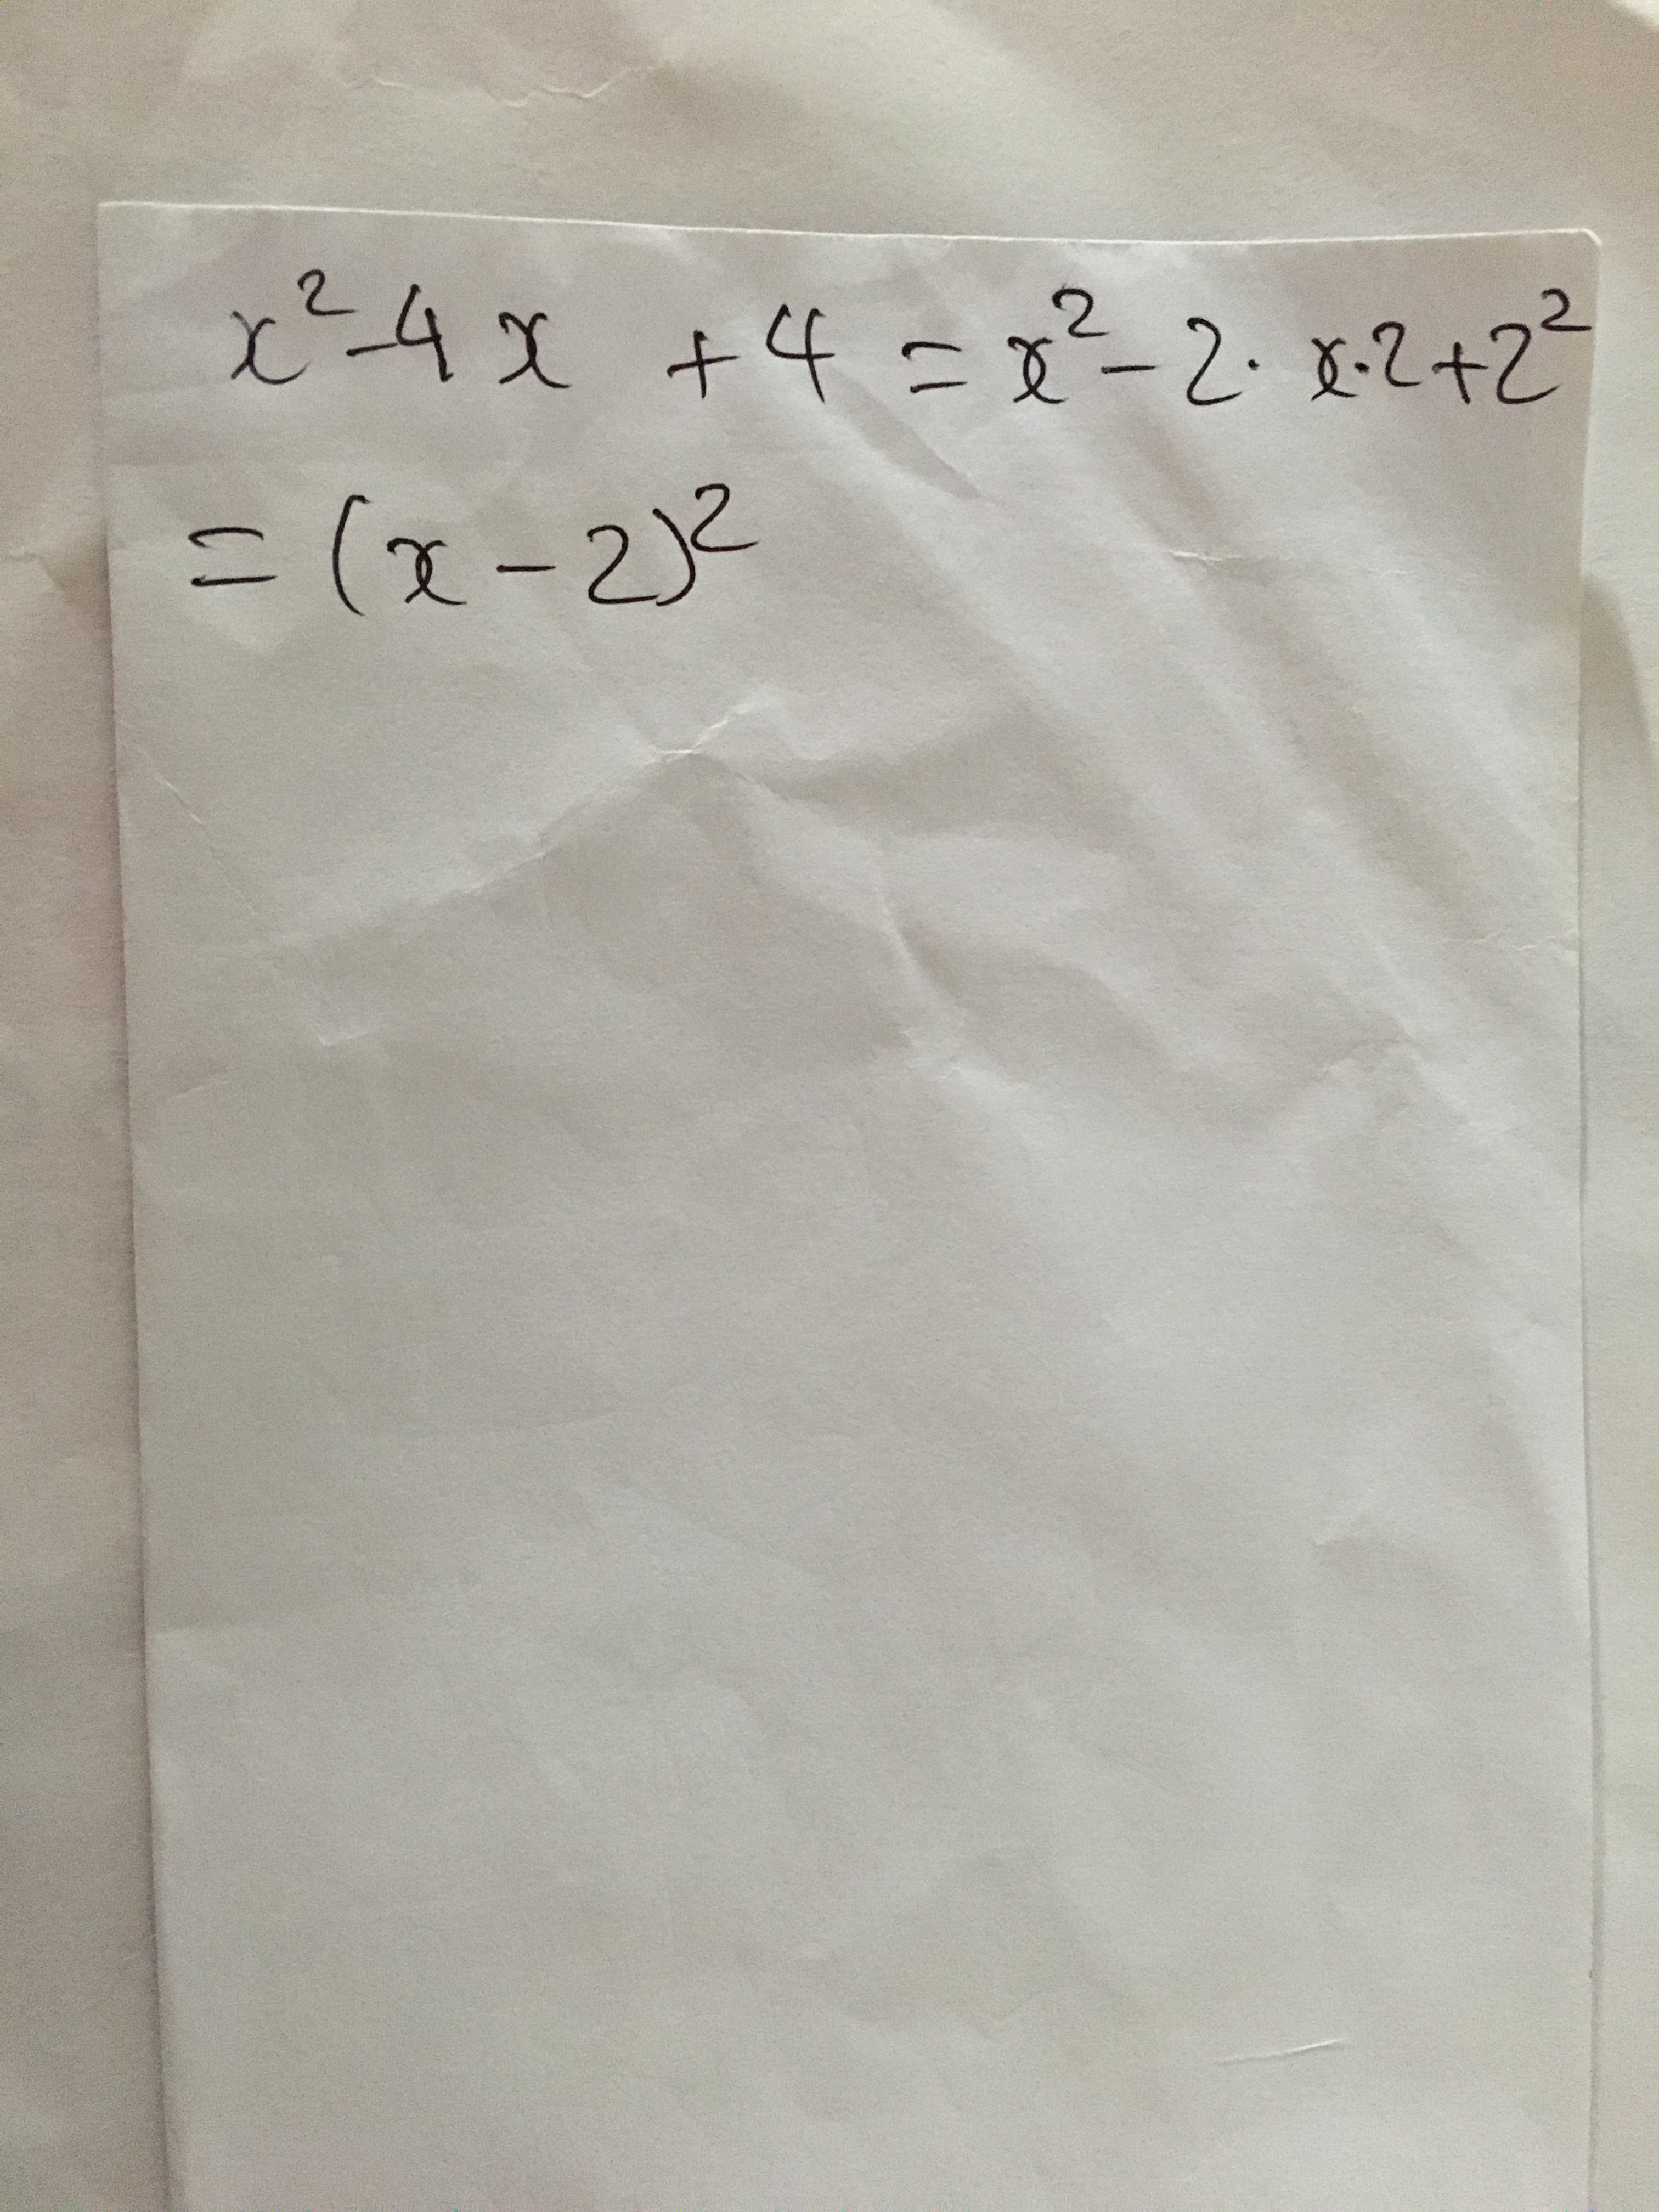 x²-4x +4 = x²-2· x·2+2²
= (x-2)²